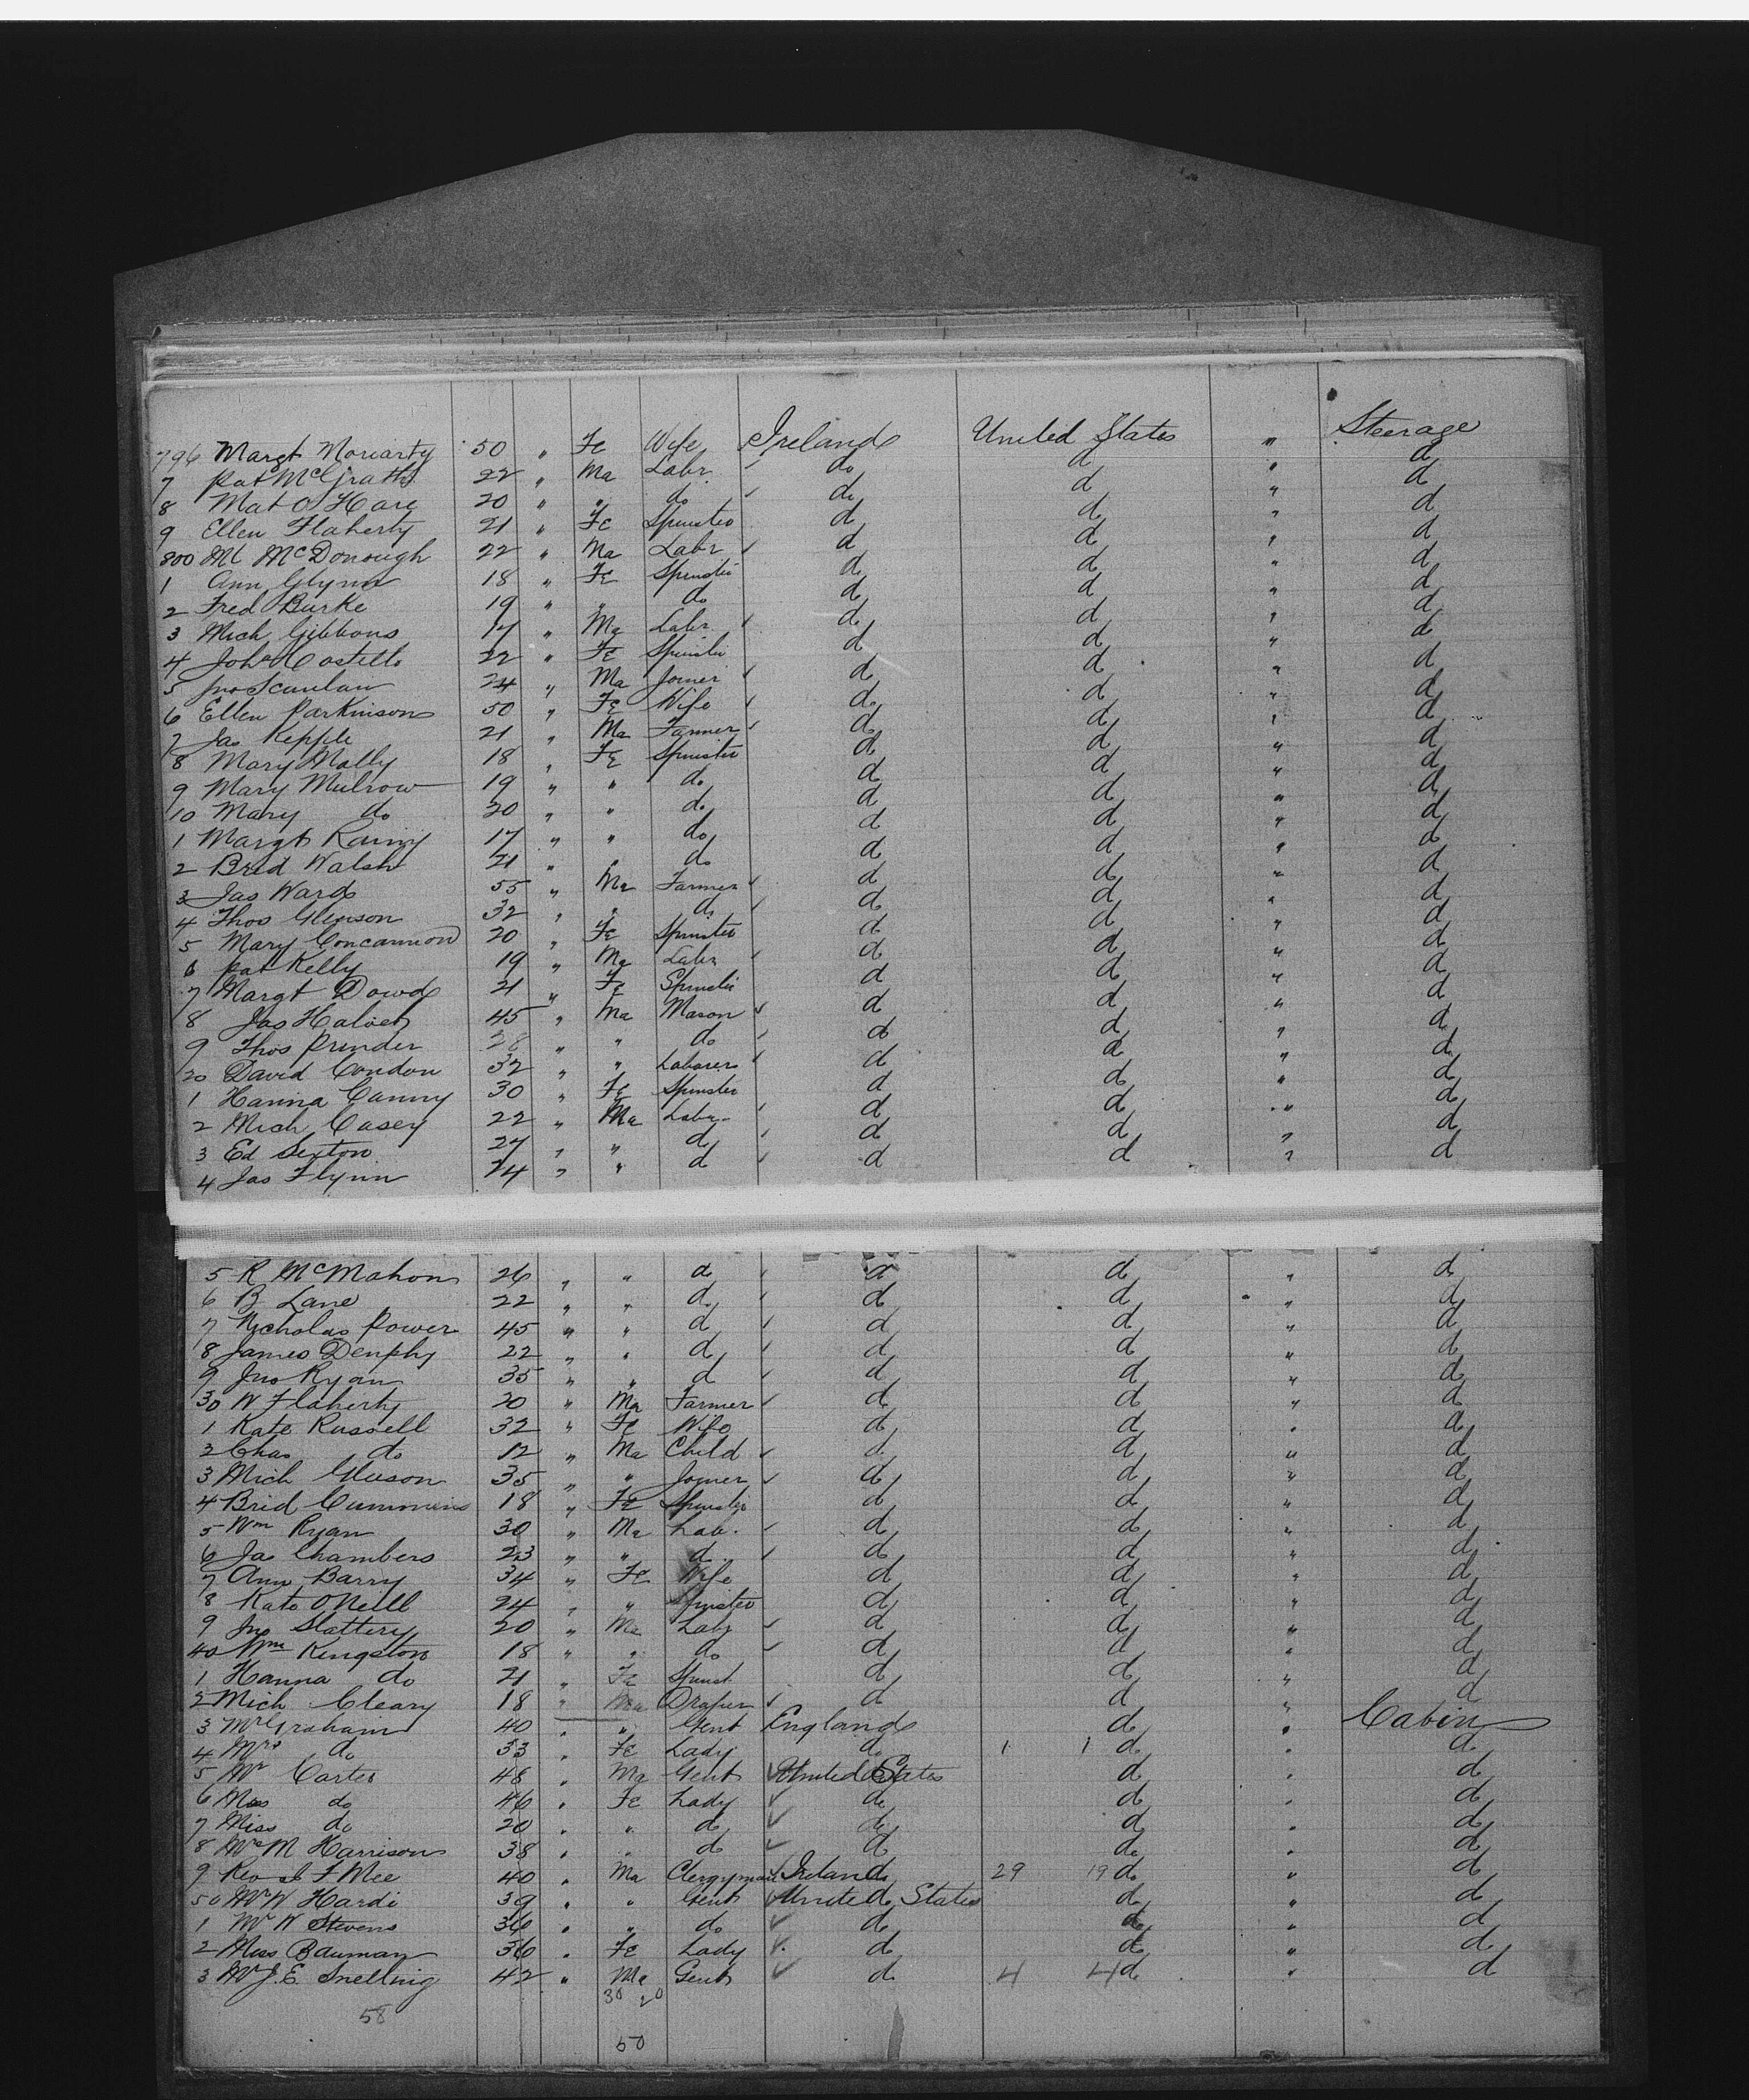 796 Margt Moriarty 50 " Fe Wife Ireland United States " Steerage
7 Pat McGrath 22 " Ma Labr do d " d
8 Mat O'Hare 20 " " do do d " d
9 Ellen Flaherty 21 " Fe Spinster d d " d
800 Ml McDonough 22 " Ma Labr d d " d
1 Ann Glynn 18 " Fe Spinster d d " d
2 Fred Burke 19 " " do d d " d
3 Mich Gibbons 17 " Ma Labr d d " d
4 Costello 22 " Fe Spinster d d " d
5 Jno Scanlan 24 " Ma Joiner d d " d
6 Ellen Parkinson 50 " Fe Wife d d " d
7 Jas Kepple 21 " Ma Farmer d d " d
8 Mary Mally 18 " Fe Spinster d d " d
9 Mary Mulrow 19 " " do d d " d
10 Mary do 20 " " do d d " d
1 Margt Rainy 17 " " do d d " d
2 Brid Walsh 21 " " do d d " d
3 Jas Ward 55 " Ma Farmer d d " d
4 Thos Gleeson 32 " " do d d " d
5 Mary Concannon 20 " Fe Spinster d d " d
6 Pat Kelly 19 " Ma Labr d d " d
7 Margt Dowd 21 " Fe Spinster d d " d
8 Jas 45 " Ma Mason d d " d
9 Thos Prender 28 " " do d d " d
20 David Condon 32 " " Laborer d d " d
1 Hanna Canny 30 " Fe Spinster d d " d
2 Mich Casey 22 " Ma Labr d d " d
3 Ed Sexton 27 " " d d d " d
4 Jas Flynn 24 " " d d d " d
5 R McMahon 26 " " d d d " d
6 B Lane 22 " " d d d " d
7 Nicholas Power 45 " " d d d " d
8 James Denphy 22 " " d d d " d
9 Jno Ryan 35 " " d d d " d
30 W Flaherty 20 " Ma Farmer d d " d
1 Kate Russell 32 " Fe Wife d d " d
2 Chas do 12 " Ma Child d d " d
3 Mich Gleeson 35 " " Joiner d d " d
4 Brid Cummins 18 " Fe Spinster d d " d
5 Wm Ryan 30 " Ma Lab. d d " d
6 Jas Chambers 23 " " d d d " d
7 Ann Barry 34 " Fe Wife d d " d
8 Kate O'Neill 24 " " Spinster d d " d
9 Jno Slattery 20 " Ma Labr d d " d
40 Wm Kingston 18 " " do d d " d
1 Hanna do 21 " Fe Spinst d d " d
2 Mich Cleary 18 " Ma Draper d d " d
3 Mr Graham 40 " " Gent England d " Cabin
4 Mrs do 33 " Fe Lady do 1 1 d " d
5 Mr Carter 48 " Ma Gent United States d " d
6 Mrs do 46 " Fe Lady do d " d
7 Miss do 20 " " d do d " d
8 Mrs M Harrison 38 " " d d d " d
9 Rev J F Mee 40 " Ma Clergyman Ireland 29 19 d " d
50 Mr W Hardi 39 " " Gent United States d " d
1 Mr W Stevens 36 " " do d d " d
2 Miss Bauman 36 " Fe Lady d d " d
3 Mr J. E. Snelling 42 " Ma Gent d 4 4 d " d
30 20
58
50